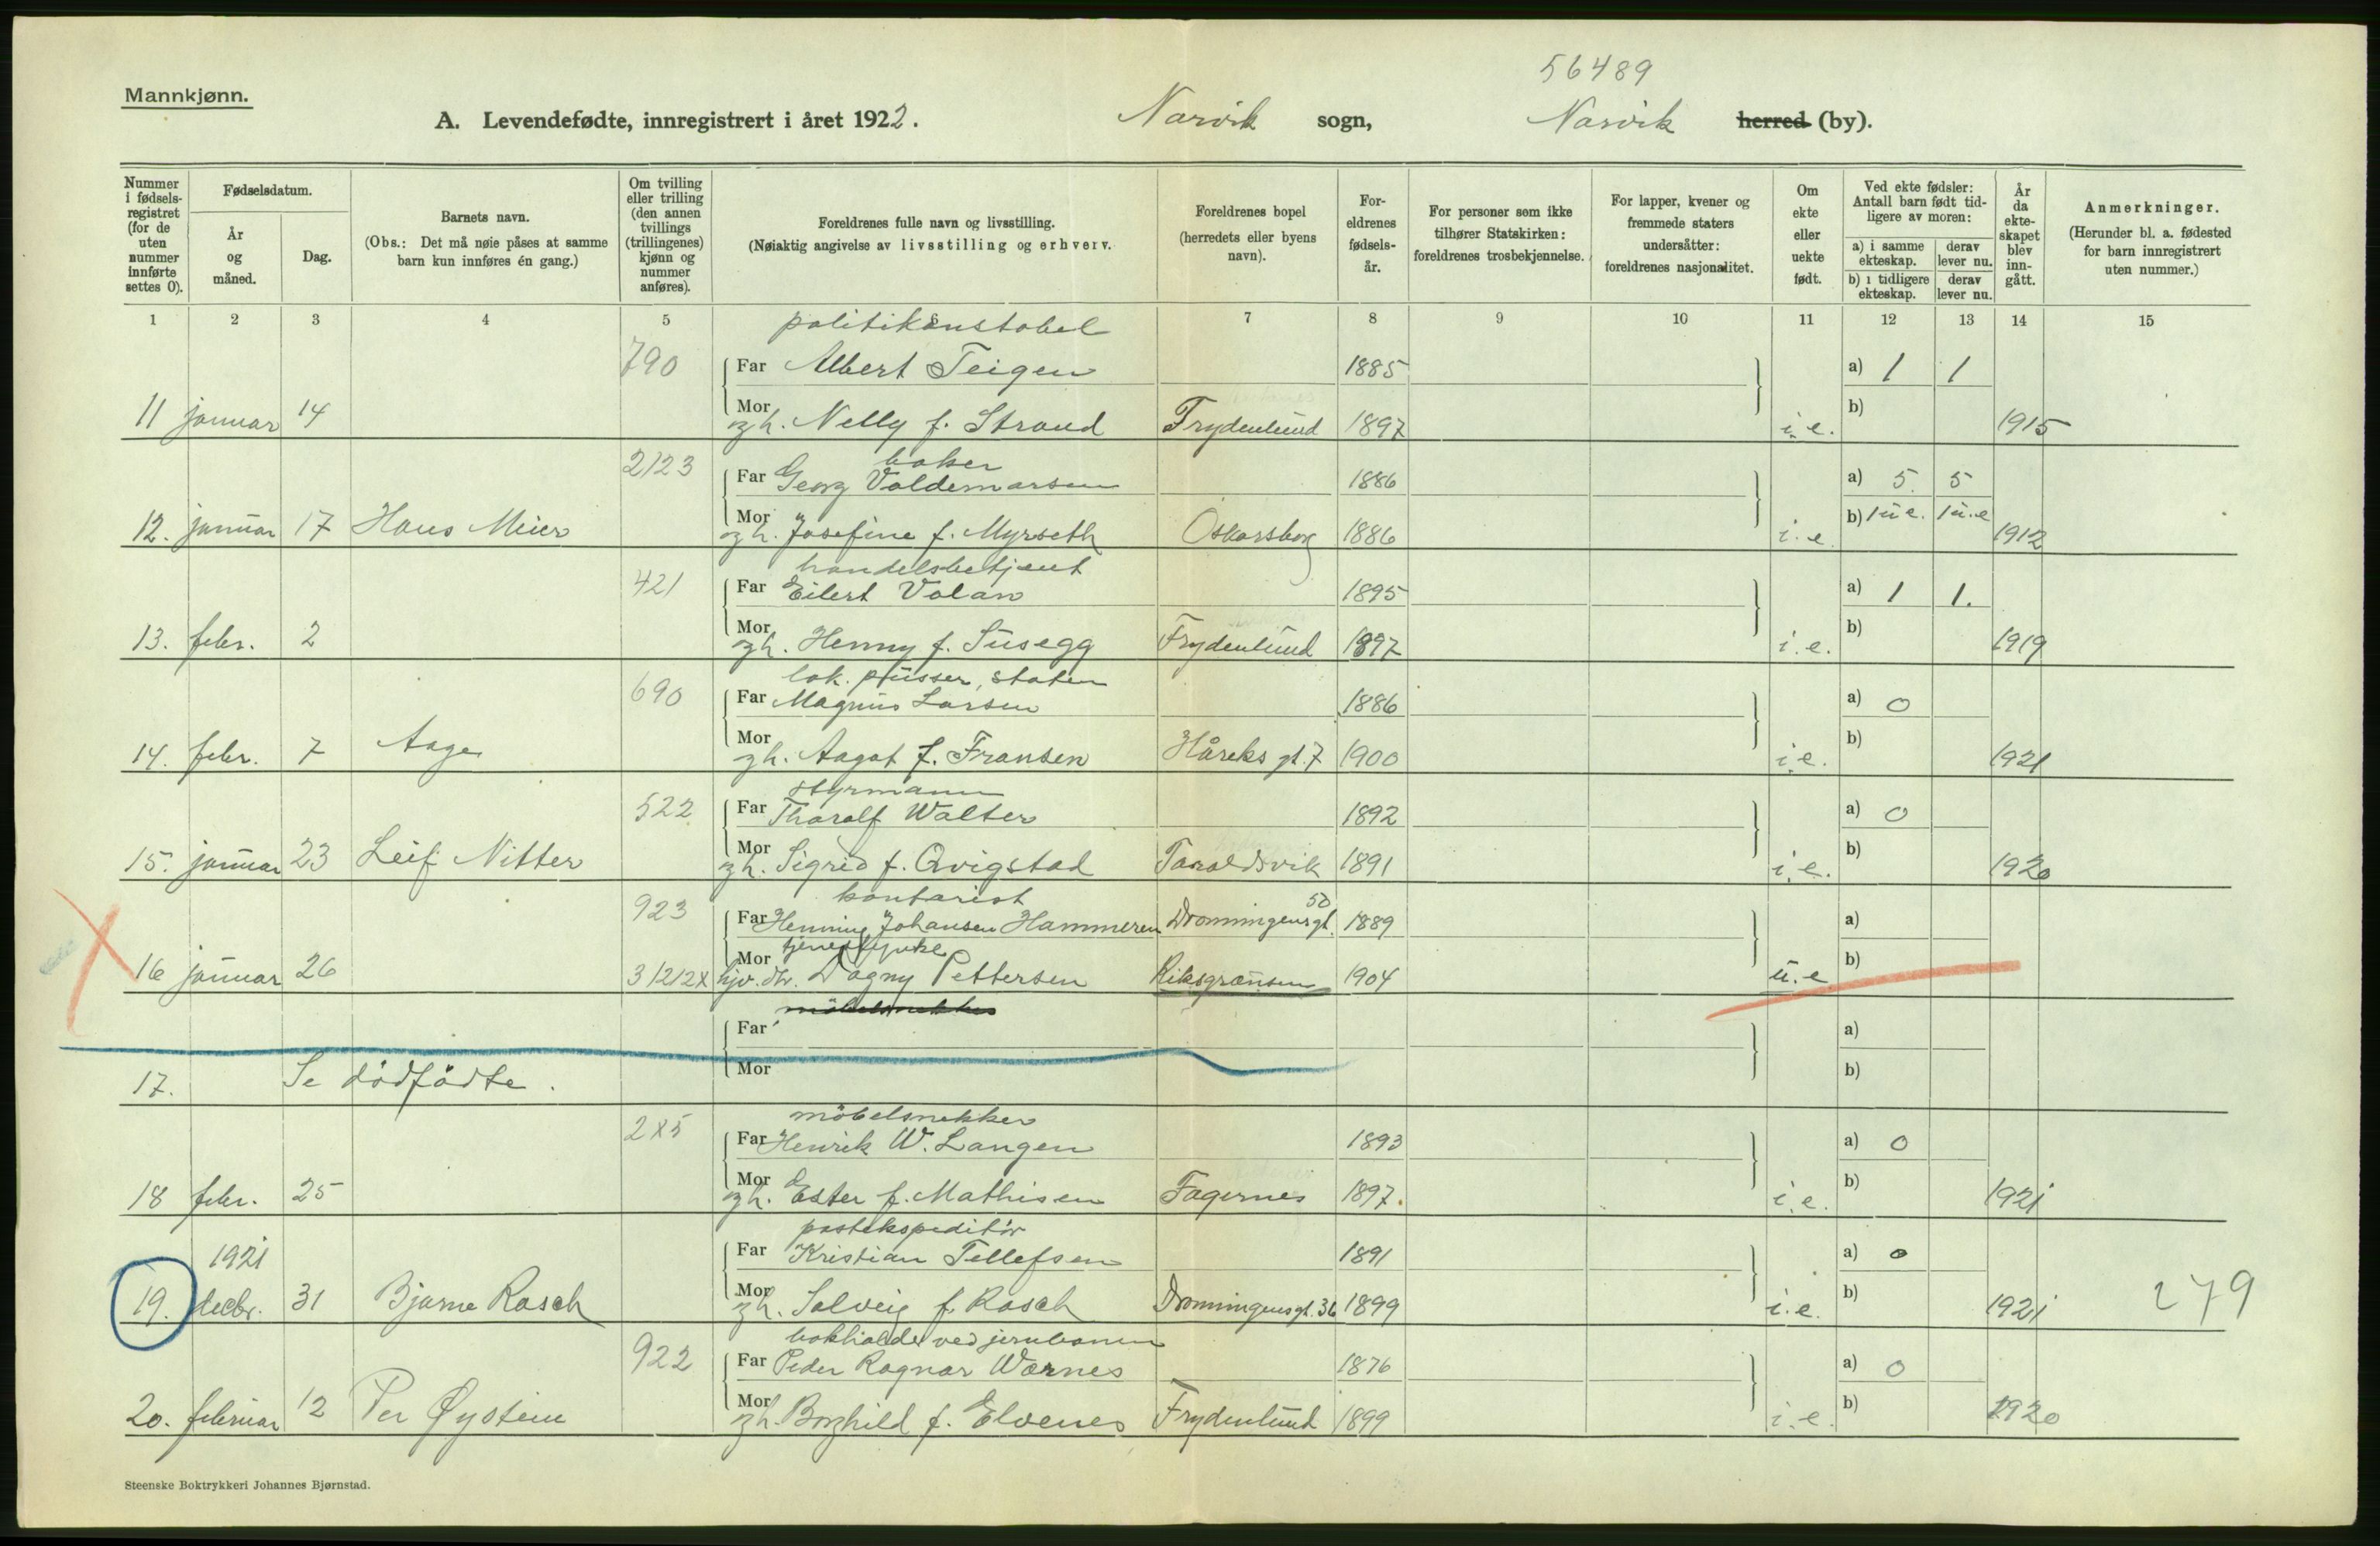 56489
Mannkjønn.
A. Levendefødte, innregistrert i året 1922. Narvik sogn, Narvik herred (by).
Nummer i fødsels-registret (for de uten nummer innførte settes 0).
Fødselsdatum.
År og måned.
Dag.
Barnets navn.
(Obs.: Det må nøie påses at samme barn kun innføres én gang.)
Om tvilling eller trilling (den annen tvillings (trillingenes) kjønn og nummer anføres).
Foreldrenes fulle navn og livsstilling.
(Nøiaktig angivelse av livsstilling og erhverv.
Foreldrenes bopel (herredets eller byens navn).
For-eldrenes fødsels-år.
For personer som ikke tilhører Statskirken: foreldrenes trosbekjennelse.
For lapper, kvener og fremmede staters undersåtter: foreldrenes nasjonalitet.
Om ekte eller uekte født.
Ved ekte fødsler: Antall barn født tid-ligere av moren:
a) i samme ekteskap. derav lever nu.
b) i tidligere ekteskap. derav lever nu.
År da ekte-skapet blev inn-gått.
Anmerkninger.
(Herunder bl. a. fødested for barn innregistrert uten nummer.)
1 2 3 4 5 6 7 8 9 10 11 12 13 14 15
politikonstabel
790 Far Albert Teigen 1885 a) 1 1
11 januar 14 Mor gh. Nelly f. Strand Frydenlund 1897 i.e. b) 1915
baker
2123 Far Georg Valdemarsen 1886 a) 5. 5
12. januar 17 Hans Meier Mor gh. Josefine f. Myrseth Oskarsborg 1886 i.e. b) 1 u e. 1 u.e 1912
handelsbetjent
421 Far Eilert Volan 1895 a) 1 1.
13. febr. 2 Mor gh. Henny f. Susegg Frydenlund 1897 i.e. b) 1919
lok. pusser, staten
690 Far Magnus Larsen 1886 a) 0
14. febr. 7 Aage Mor gh. Aagot f. Fransen Håreks gt. 7 1900 i.e. b) 1921
styrmann
522 Far Tharalf Walter 1892 a) 0
15. januar 23 Leif Nitter Mor gh. Sigrid f. Qvigstad Taraldsvik 1891 i.e. b) 1920
kontorist
923 Far Henning Johansen Hammeren Dronningensgt. 50 1889 a)
tjenestepike
16 januar 26 31212x Mor hjv. dtr. Dagny Pettersen Riksgrænsen 1904 u.e b)
møbelsnekker
Far a)
17. Se dödfödte. Mor b)
möbelsnekker
285 Far Henrik W. Langen 1893 a) 0
18 febr. 25 Mor gh. Ester f. Mathisen Fagernes 1897. i.e. b) 1921
postekspeditör
1921 Far Kristian Tellefsen 1891 a) 0
19. decbr. 31 Bjarne Rasch Mor gh. Solveig f. Rasch Dronningensgt. 36 1899 i.e. b) 1921 279
bokholder ved jernbanen
922 Far Peder Ragnar Wærnes 1876 a) 0
20. februar 12 Per Øystein Mor gh. Borghild f. Elvenes Frydenlund 1899 i.e. b) 1920
Steenske Boktrykkeri Johannes Bjørnstad.